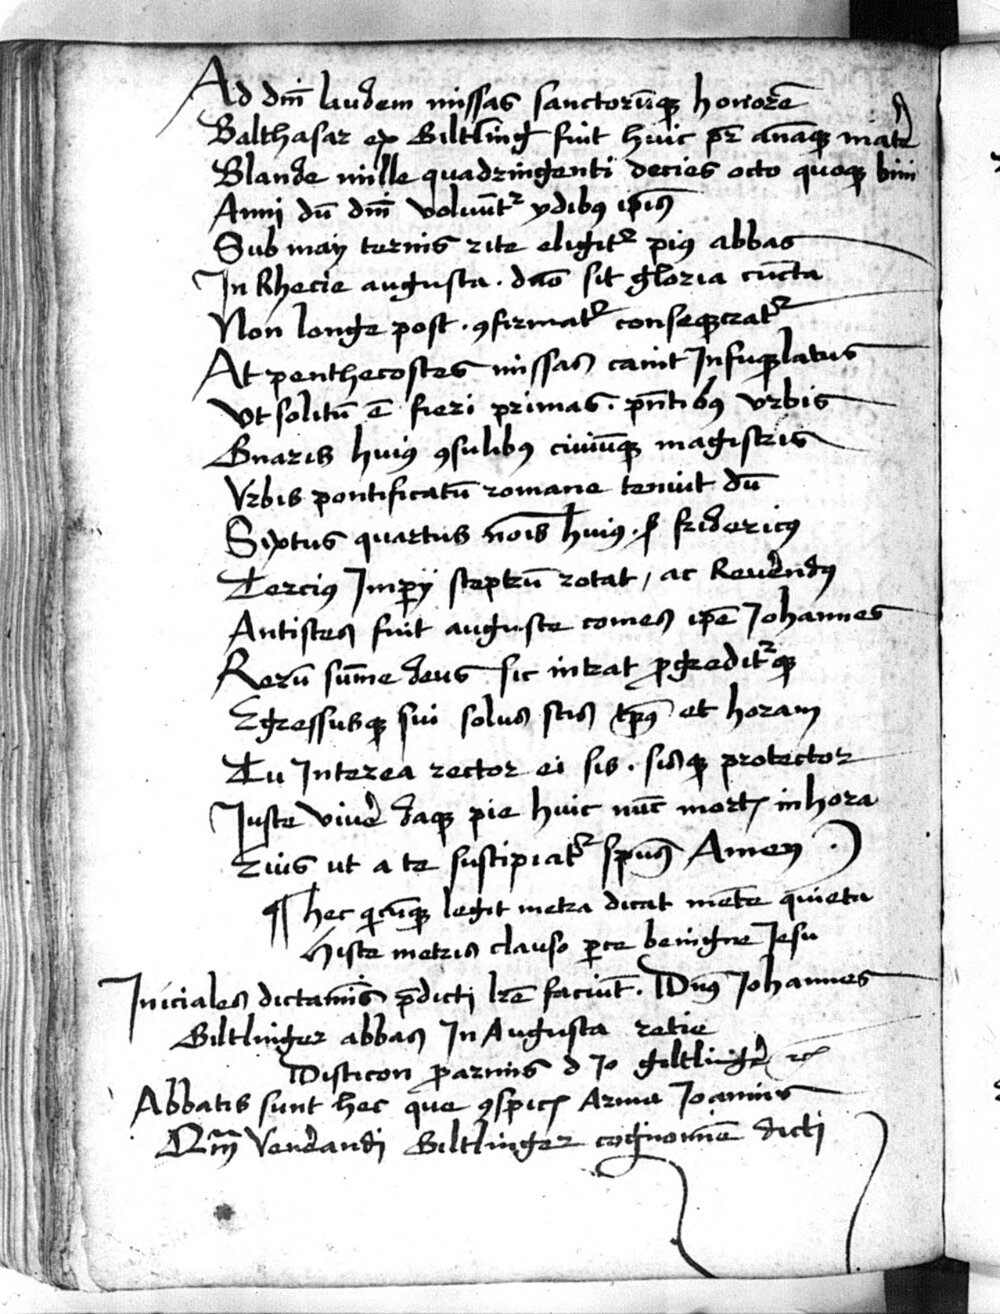 Ad dm̄ laudem missas sanctorūqꝫ honorē
Balthasar ex Giltling fuit huic pr̄ annaqꝫ mater
Blande mille quadringenti decies octo quoqꝫ bini
Anni dū dm̄ voluūtᵉ ydibꝯ ipiꝯ
Sub maij ternis rite eligitᵉ piꝯ abbas
In Rhecie augusta . deo sit gloria cūcta
Non longe post . ꝯfirmatᵉ conseqꝫcratᵉ
At penthecostes missas canit Infuꝗlatus
Vt solitū ē fieri primas . pn̄tibꝯ vrbis
Gnaris huiꝯ ꝯsulibꝯ ciuiūqꝫ magistris
Vrbis pontificatū romane tenuit dū
Sixtus quartus nois̄ huiꝯ . fridericꝯ
Terciꝯ Imꝑij sceptrū rotat / ac Reuerendꝯ
Antistes fuit auguste comes ipē Johannes
Rerū sum̄e deus sic intrat ꝓgreditᵉqꝫ
Egressusqꝫ sui solus scis tp̄ꝯ et horam
Tu Interea rector ei sis . sisqꝫ protector
Iuste viuere daqꝫ pie huic nūc mortꝭ in hora
Eius ut a te suscipiatᵉ spūs Amen .
¶ hec qꝫcūqꝫ legit metra dicat mēte quieta
Histe metris clauso ꝑce benigne Jesu
Iniciales dictamīs p̄dicti lrē faciūt . Dn̄ꝯ Johannes
Giltlinger abbas In Augusta retie
Disticon ꝓ armis d Jo giltlinger ꝛc
Abbatis sunt hec que ꝯspicꝭ Arma Joannis
Dn̄i Venerandi Giltlinger cognomīe dicti